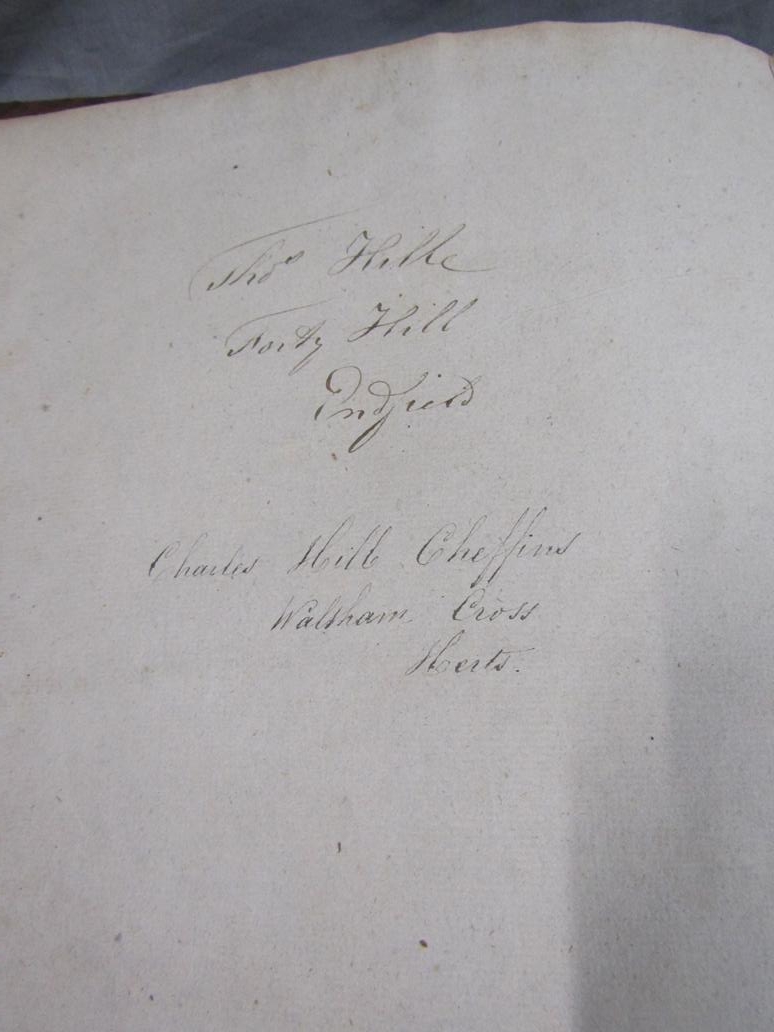 Thos Hill
Forty Hill
Endfield
Charles Hill Cheffins
Waltham Cross
Herts.